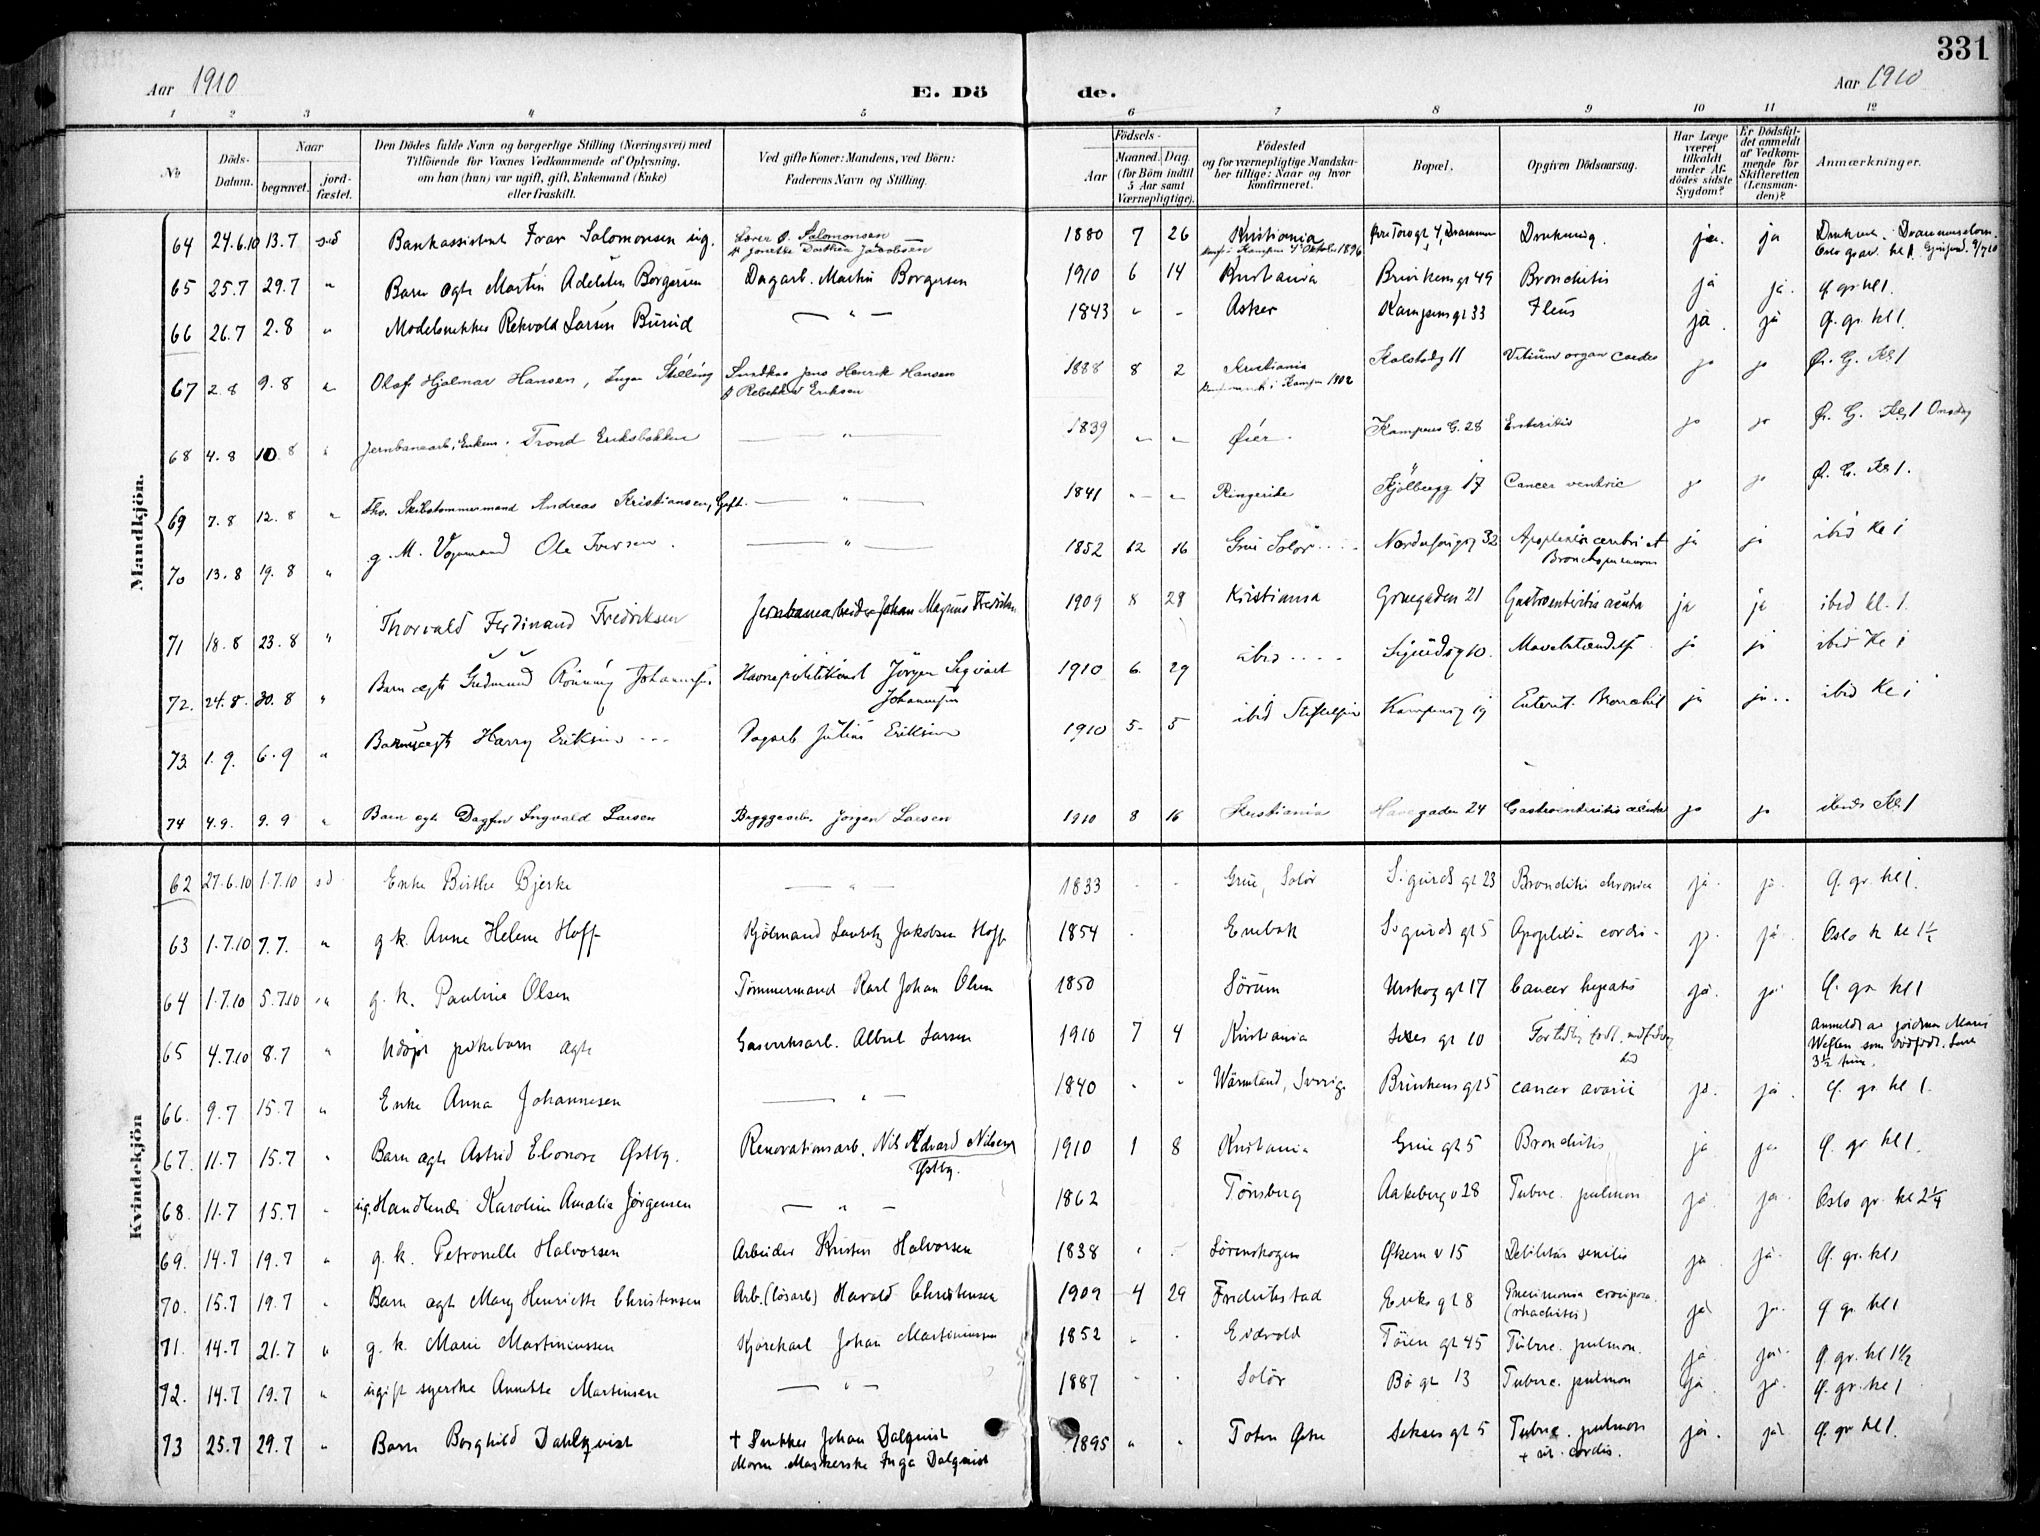 331
Aar 1910
E. Dö de.
Aar 1910
1 2 3 4 5 6 7 8 9 10 11 12
No
Döds-Datum.
Naar
begravet.
jord-fæstet.
Den Dödes fulde Navn og borgerlige Stilling (Næringsvei) med
Tilföiende for Voxnes Vedkommende af Oplysning,
om han (hun) var ugift, gift, Enkemand (Enke)
eller fraskilt.
Ved gifte Koner: Mandens, ved Börn:
Faderens Navn og Stilling.
Födsels-
Aar
Maaned. Dag.
(for Börn indtil
5 Aar samt
Værnepligtige).
Födested
og for værnepligtige Mandska-
ber tillige: Naar og hvor
konfirmeret.
Bopæl.
Opgiven Dödsaarsag.
Har Læge
været
tilkaldt
under Af-
dödes sidste
Sygdom?
Er Dödsfal-
det anmeldt
af Vedkom-
mende for
Skifteretten
(Lensman-
den)?
Anmærkninger.
Mandkjön.
64 24.6.10 13.7 Bankassistent Salomonsen ug. Salomonsen 1880 7 26 Kristiania Drukning. ja ja
65 25.7 29.7 " Barn ægte Martin Adelsten Borgersen Dagarb. Martin Borgersen 1910 6 14 Kristiania 49 Bronchitis ja ja. Ø. gr kl 1.
66 26.7 2.8 " Larsen — " — 1843 " - Asker Kampensgt 33 Ileus ja. ja Ø. gr. kl 1.
67 2.8 9.8 " Olaf Hjalmar Hansen, Ingen Stilling Snedker Jens Henrik Hansen 1888 8 2 Kristiania 11 Vitium organ cordis ja ja Ør. G. Kl 1
& Rebekka Eriksen Kampen 1902
68 4.8 10.8 " Jernbanearb., Enkem. Trond Eriksbakken — " — 1839 " " Øier. Kampens G. 28 Enteritis ja ja Ør. G. Kl 1 Onsdag
69 7.8 12.8 " Fhv. Skibstømmermand Andreas Kristiansen, Gift. — " — 1841 " - " Ringerike Kjølbergg 17 Cancer ventric ja ja Ør. G. Kl 1.
70 13.8 19.8 " g. M. Vognmand Ole Iversen. — " — 1852 12 16 Grue Solør 32 Apoplexia cerebri et ja ja ibid Kl 1
71 18.8 23.8 " Thorvald Ferdinand Fredriksen Jernbanearbeider Johan Magnus Fredriksen 1909 8 28 Kristiania Gruegaden 21 Gastroenteritis acuta ja ja ibid kl. 1.
72. 24.8. 30.8 " Barn ægte Gudmund Rønning Johannesen Jørgen Sigvart 1910 6. 29 ibid Sigurdsg 10. ja ja ibid Kl 1
Johannesen
73. 1.9. 6.9 " Harry Eriksen Dagarb Julius Eriksen 1910 5- 5 ibid Stiftelsen Kampensg 19 Enterit. Bronchit ja ja ibid Kl 1
74 4.9. 9.9 " Barn ægte Dagfin Ingvald Larsen Byggearb. Jørgen Larsen 1910 8 16 Kristiania Havegaden 24 Gastroenteritis acuta ja ja ibid Kl 1
Kvindekjön
62 27.6.10 1.7.10 Enke Birthe Bjerke — " — 1833 - - Grue, Solør Sigurds gt 23 Bronchitis chronica ja. ja. Ø. gr. kl 1.
63 1.7.10 7.7. " g. k. Anne Helene Hoff Kjølmand Lauritz Jakobsen Hoff 1854 - Enebak Sigurds gt 5 Apoplexia cordis ja. ja. Oslo kl 1½
64 1.7.10 5.7.10 " g. k. Pauline Olsen Tømmermand Karl Johan Olsen 1850 Sørum Urskog gt 17 Cancer hepatis ja. ja Ø. gr kl 1
65 4.7.10 8.7 " Udøpt pikebarn ægte Gasverksarb. Albert Larsen 1910 7 4 Kristiania gt 10 For tidlig født, Anmeldt av jordmor Marie
som dødfødt. Levet
3½ time.
66. 9.7 15.7 " Enke Anna Johannesen — " — 1840 " " Wärmland, Sverig. gt 5 cancer ovarii ja. ja. Ø. gr kl 1.
67. 11.7 15.7 " Barn ægte Astrid Eleonore Østby. Renovationsarb. Nils Edvard Nilsen 1910 1 8 Kristiania Grue gt 5 Bronchitis ja ja Ø. gr kl 1.
Østby.
68. 11.7 15.7 " ug. Handlende Karoline Amalie Jørgensen — " — 1862 Tønsberg Aakeberg v 28 Tuberc. pulmon ja. ja. Oslo gr. kl 2¼
69. 14.7 19.7 " g. k. Petronelle Halvorsen Arbeider Kristen Halvorsen 1838 " . Sørenskogen Økern v 15 Debilitas senilis ja ja. Ø. gr. kl 1
70. 15.7 19.7 " Barn ægte Mary Henriette Christensen Arb. (løsarb) Harald Christensen 1909 4 29 Fredrikstad Eriks gt 8 Pneumonia crouposa. ja ja. Ø. gr kl 1
(rhachitis)
71. 14.7 21.7 " g. k. Marie Martiniussen Kjørekarl Johan Martiniussen 1852 " . Eidsvold Tøien gt 45 Tuberc. pulmon. ja ja. Ø. gr. kl 1½
72. 14.7 19.7 " ugift syerske Annette Martinsen — " — 1887 " " Solør Bø gt 13 Tuberc. pulmon ja. ja. Ø. gr. kl 1
73 25.7 29.7 " Barn Borghild Dahlqvist † Snekker Johan Dalqvist 1895 " " Toten Østre gt 5 Tuberc. pulmon ja. ja. Ø. gr kl 1.
Moren Inga Dalqvist + cordis.